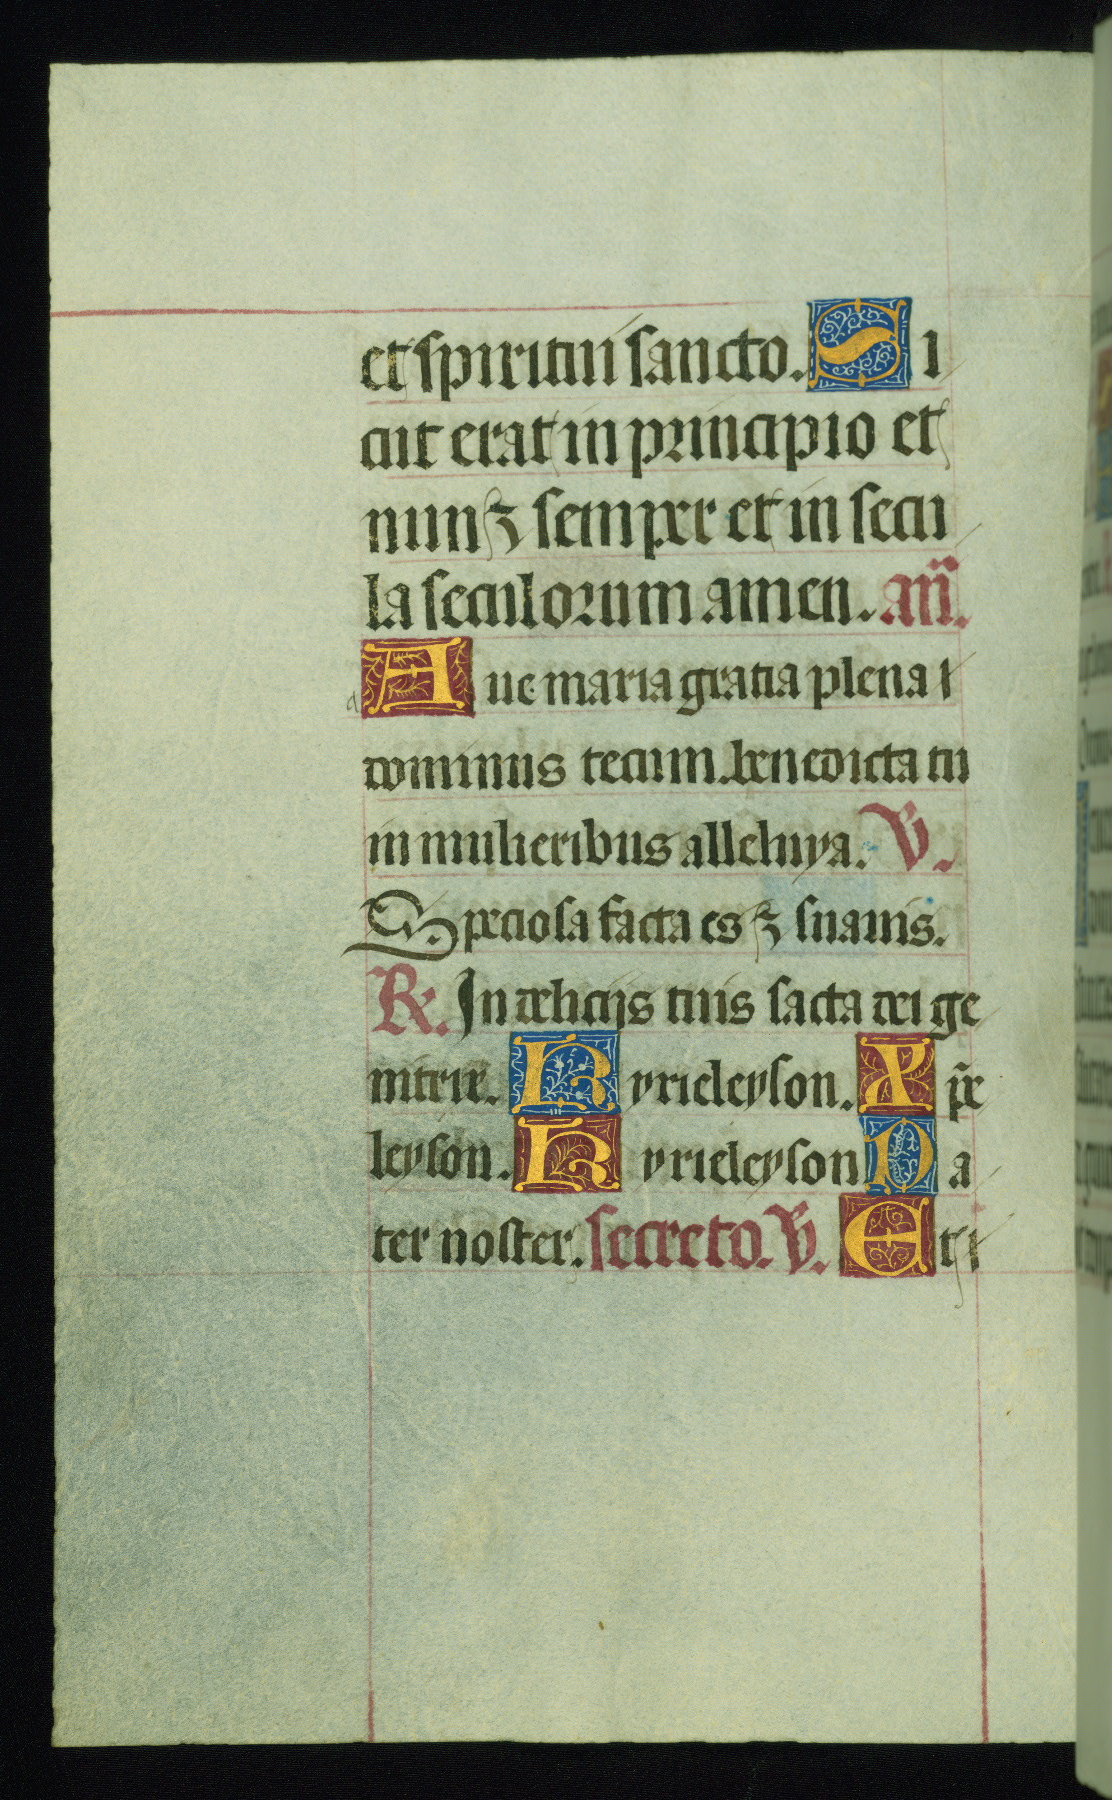 et spiritui sancto. Si
cut erat in principio et
nunc ⁊ semper et in secu
la seculorum amen. an̄.
a Aue maria gratia plena
dominus tecum. benedicta tu
in mulieribus alleluya. V.
Speciosa facta es ⁊ suauis.
R. In delicijs tuis sacta dei ge
nitrix. Kyrieleyson. Xp̄e
leyson. Kyrieleyson Pa
ter noster. secreto. V. Et